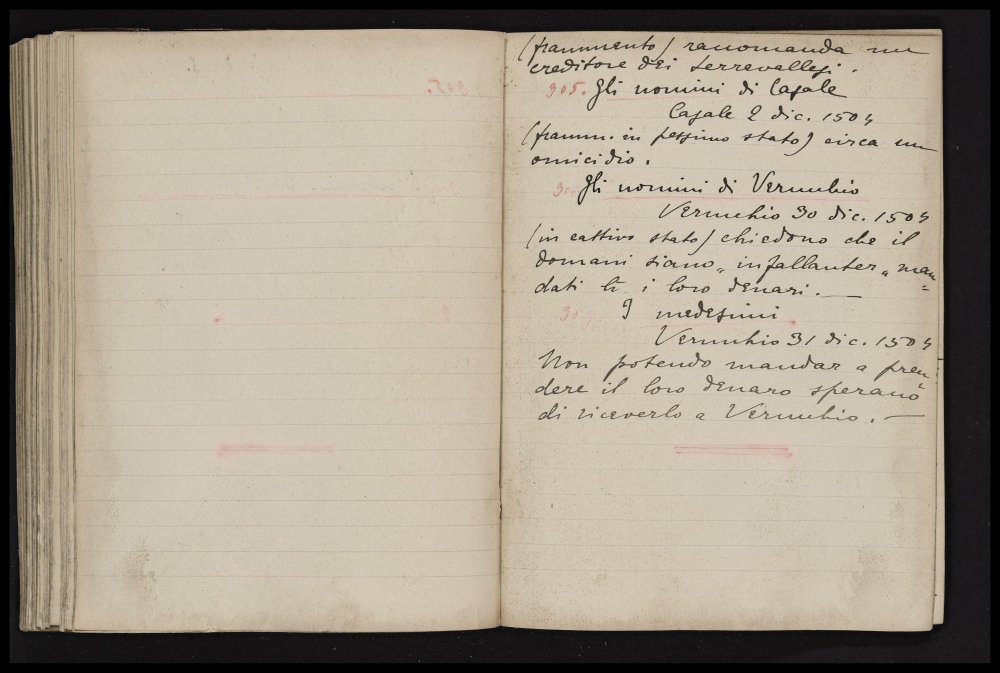 (frammento) raccomanda un
creditore dei serravallesi.
905. Gli uomini di Casale
Casale 2 dic. 1504
(framm. in pessimo stato) circa un
omicidio.
Gli uomini di Verucchio
Verucchio 30 dic. 1504
(in cattivo stato) chiedono che il
domani siano „ infallanter „ man=
dati lì i loro denari. —
I medesimi
Verucchio 31 dic. 1504
Non potendo mandar a pren=
dere il loro denaro sperano
di riceverlo a Verucchio. —